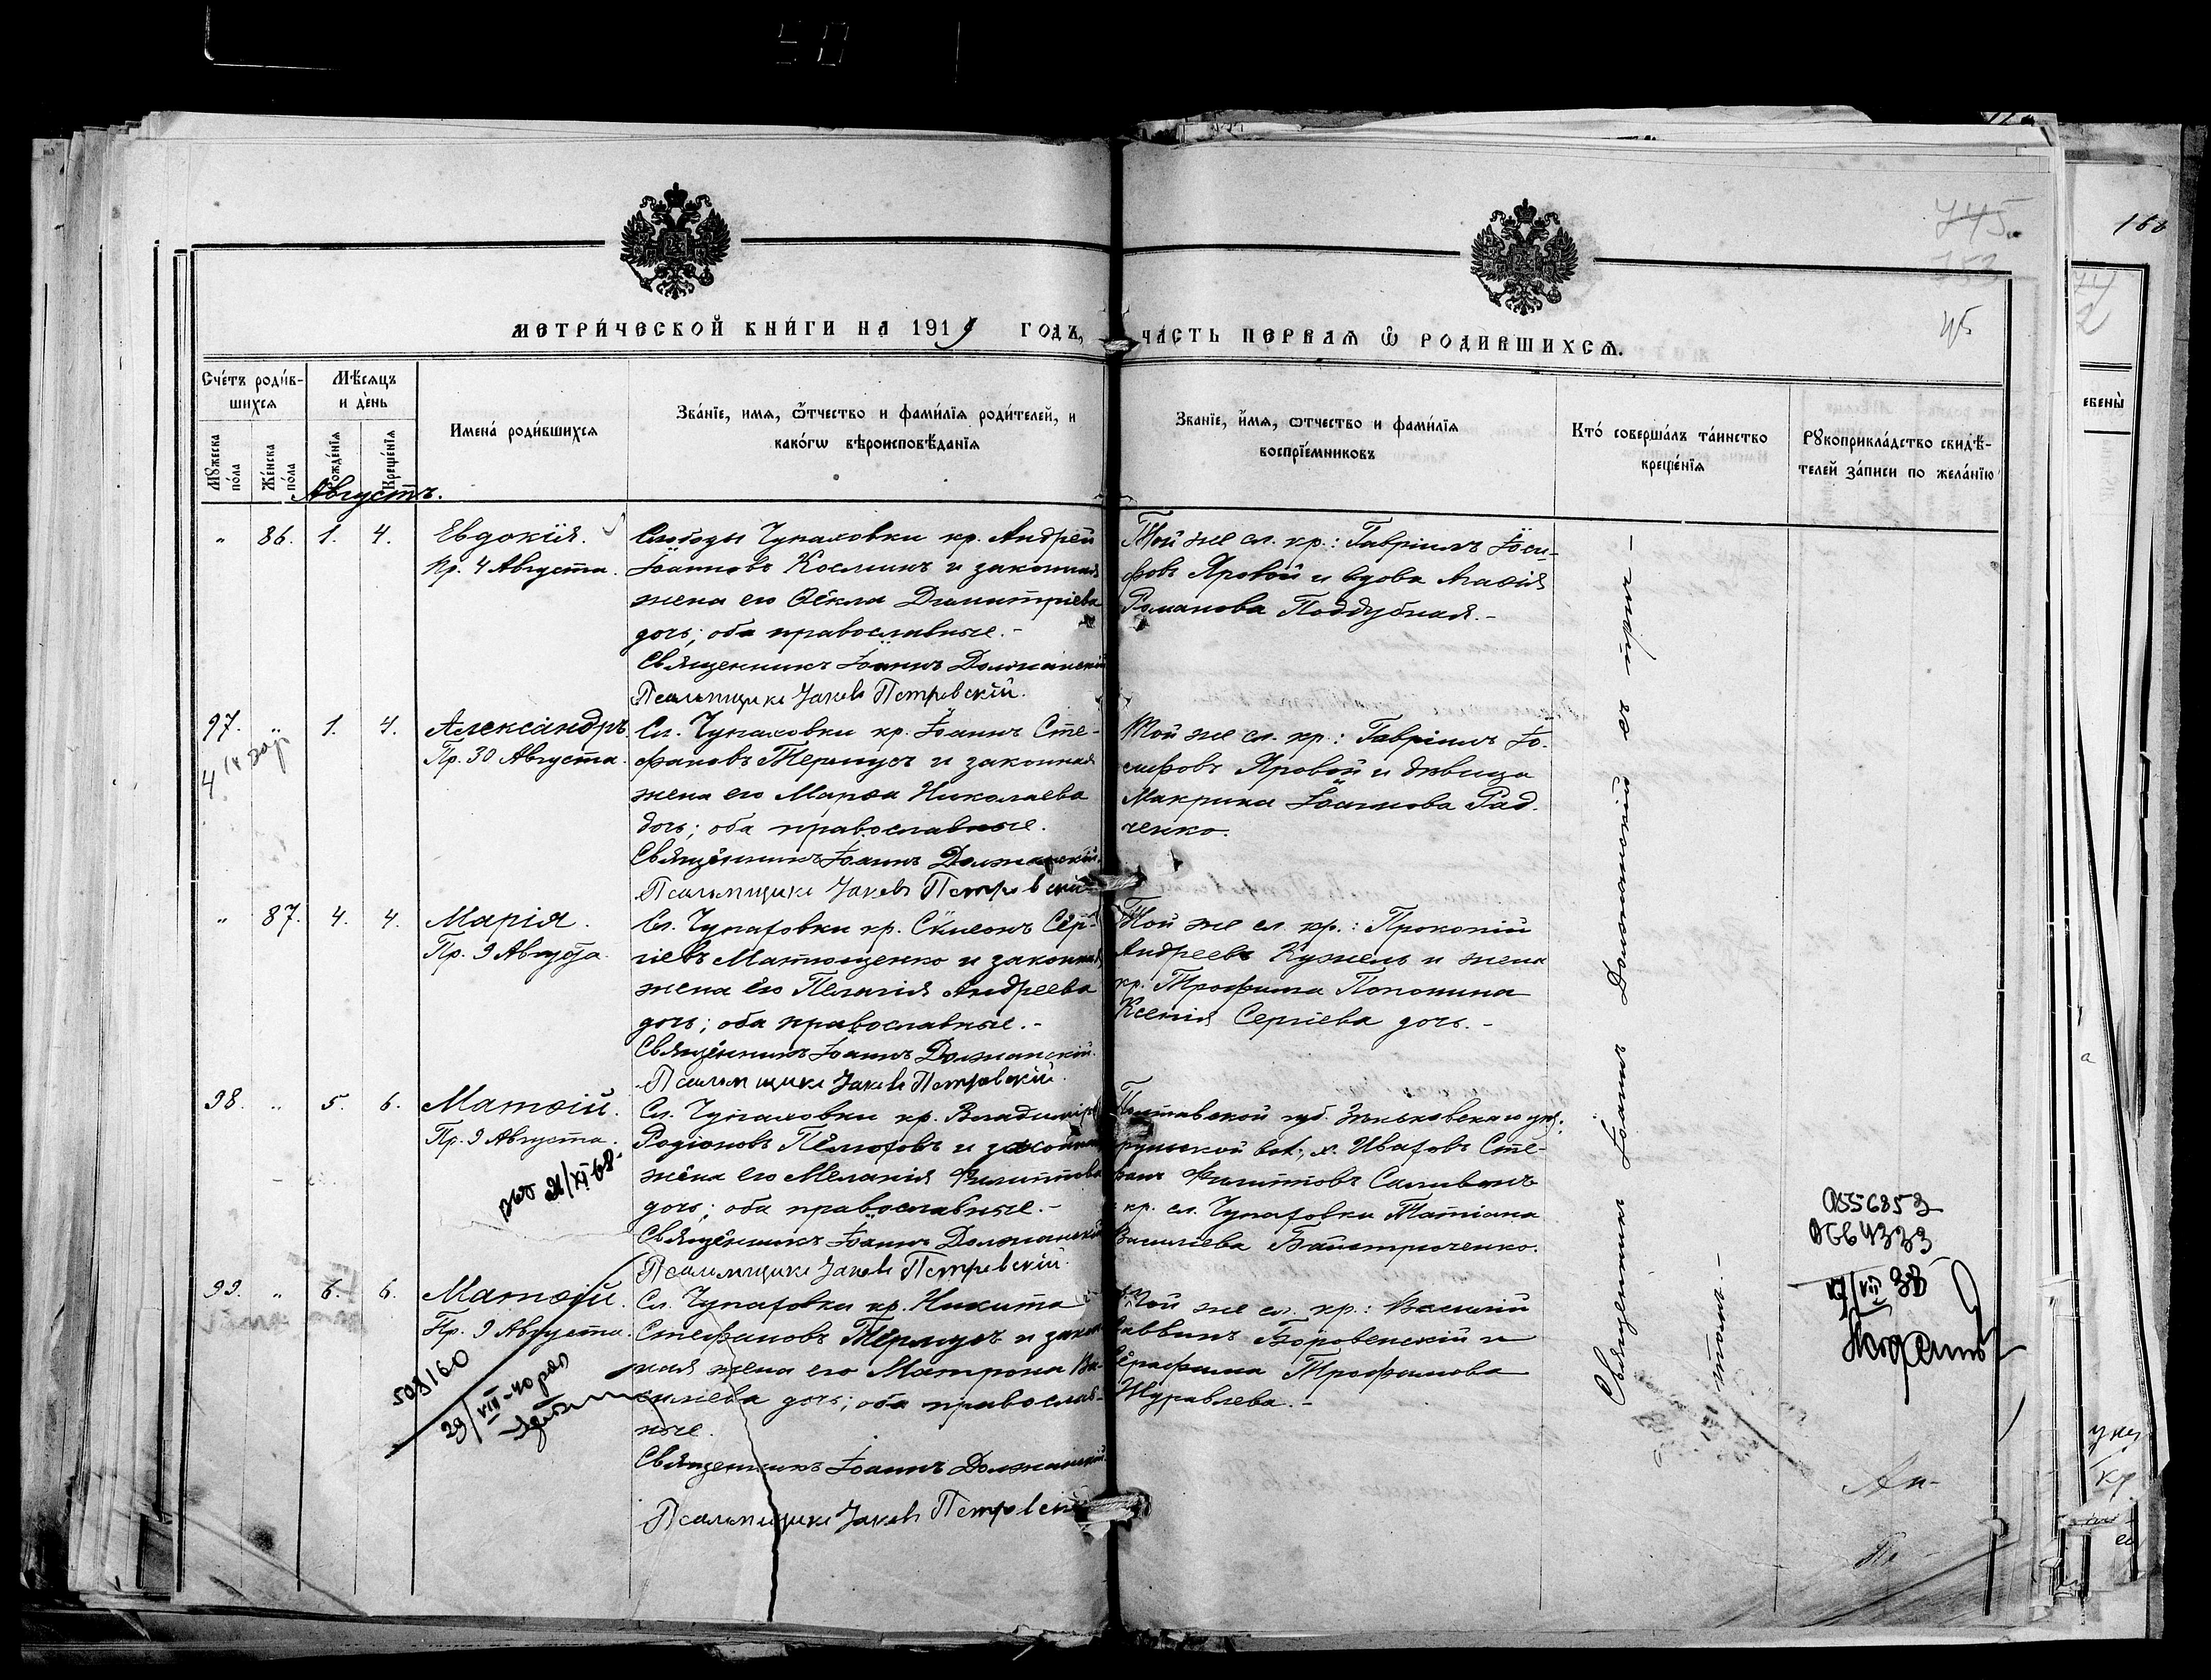 745.
753
45
166
МЕТРИ́ЧЕСКОЙ КНИ́ГИ НА 1919 ГОДЪ,
ЧА́СТЬ ПЕРВАѦ Ѡ҆ РОДИВШИХСѦ.
Сче́тъ роди́в-
шихсѧ
Мѣсѧцъ
и де́нь
Мꙋжеска
по́ла
Же́нска
по́ла
Рожде́нїѧ
Креще́нїѧ
Имена́ роди́вшихсѧ
Зва́нїе, имѧ, ѿтчество и фами́лїѧ роди́телей, и
како́гѡ вѣроисповѣ́данїѧ
Зва́нїе, и҆́мѧ, ѿтчество и фами́лїѧ
воспрїе́мниковъ
Кто́ соверша́лъ та́инство
креще́нїѧ
Рꙋкоприкла́дство свидѣ́-
телей за́писи по жела́нїю
Августъ.
„ 86. 1. 4.
Евдокія.
Пр. 4 Августа.
Слободы Чупаховки кр. Андрей
Іоанновъ Косминъ и законная
жена его Ѳекла Димитріева
дочь; оба православные.-
Священникъ Іоаннъ Должанскій
Псаломщикъ Іаковъ Петровскій.
Той же сл. кр.: Гавріилъ Іоси-
фовъ Яровой и вдова Агаѳія
Романова Поддубная.-
97. „ 1. 4.
Александръ.
Пр. 30 Августа.
Сл. Чупаховки кр. Іоаннъ Сте-
фановъ Термусъ и законная
жена его Марѳа Николаева
дочь; оба православные.
Священникъ Іоаннъ Должанскій.
Псаломщикъ Іаковъ Петровскій
Той же сл. кр.: Гавріилъ Іо-
сифовъ Яровой и дѣвица
Макрина Іоаннова Рад-
ченко.
„ 87. 4. 4.
Марія.
Пр. 9 Августа.
Сл. Чупаховки кр. Сѵмеонъ Сер-
гіевъ Матющенко и законная
жена его Пелагія Андреева
дочь; оба православные.-
Священникъ Іоаннъ Должанскій.
Псаломщикъ Іаковъ Петровскій.
Той же сл. кр.: Прокопій
Андреевъ Кужель и жена
кр. Трофима Попонина
Ксенія Сергіева дочь.-
98. „ 5. 6.
Матѳій.
Пр. 9 Августа.
21/XI 68.
Сл. Чупаховки кр. Владиміръ
Родіоновъ и законная
жена его Меланія Филиппова
дочь; оба православные.-
Священникъ Іоаннъ Должанскій
Псаломщикъ Іаковъ Петровскій.
Полтавской губ. Зеньковскаго у.
вол., х. Иваховъ Сте-
фанъ Филипповъ Саливонъ
кр. сл. Чупаховки Татіана
Василіева Байстрюченко.
99. „ 6. 6.
Матѳій.
Пр. 9 Августа.
508160
29/VII-40
Сл. Чупаховки кр. Никита
Стефановъ Термусъ и закон-
ная жена его Матрона Ва-
силіева дочь; оба православ-
ные.
Священникъ Іоаннъ Должанскій.
Псаломщикъ Іаковъ Петровскій
Той же сл. кр.: Василій
Саввинъ Боровенскій и
Серафима Трофимова
Журавлева.-
Священникъ Іоаннъ Должанскій съ прич-
томъ.-
0556853
17/VII 38